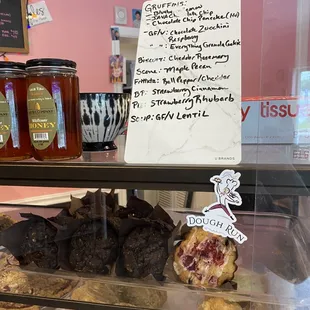 GRUFFINS:
Chip
Chocolate Chip Pancake (NG)
GF/V: Chocolate Zucchini
Raspberry
Everything Granola Cookie
Biscuit: Cheddar Rosemary
Scone: Maple Pecan
Frittata: Bell Pepper/Cheddar
DT: Strawberry Cinnamon
Pi: Strawberry Rhubarb
Soup: GF/V Lentil
tissue
HONEY
HONEY
DOUGH RUN